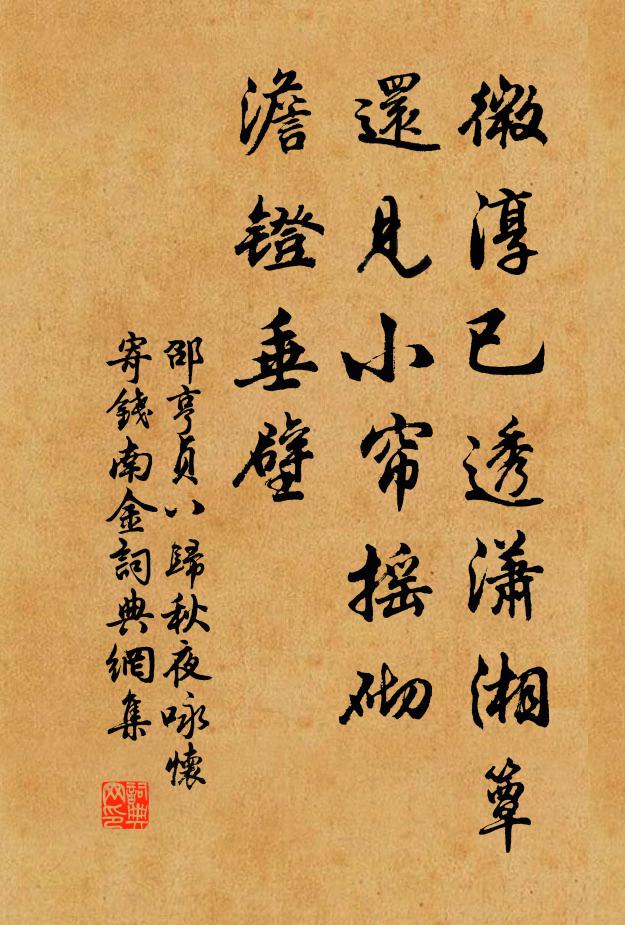 微淳已透瀟湘簟
還見小帘摇砌
澹鐙垂壁
邵亨貞八歸秋夜咏懷
寄錢南金詞典網集
詞典网印